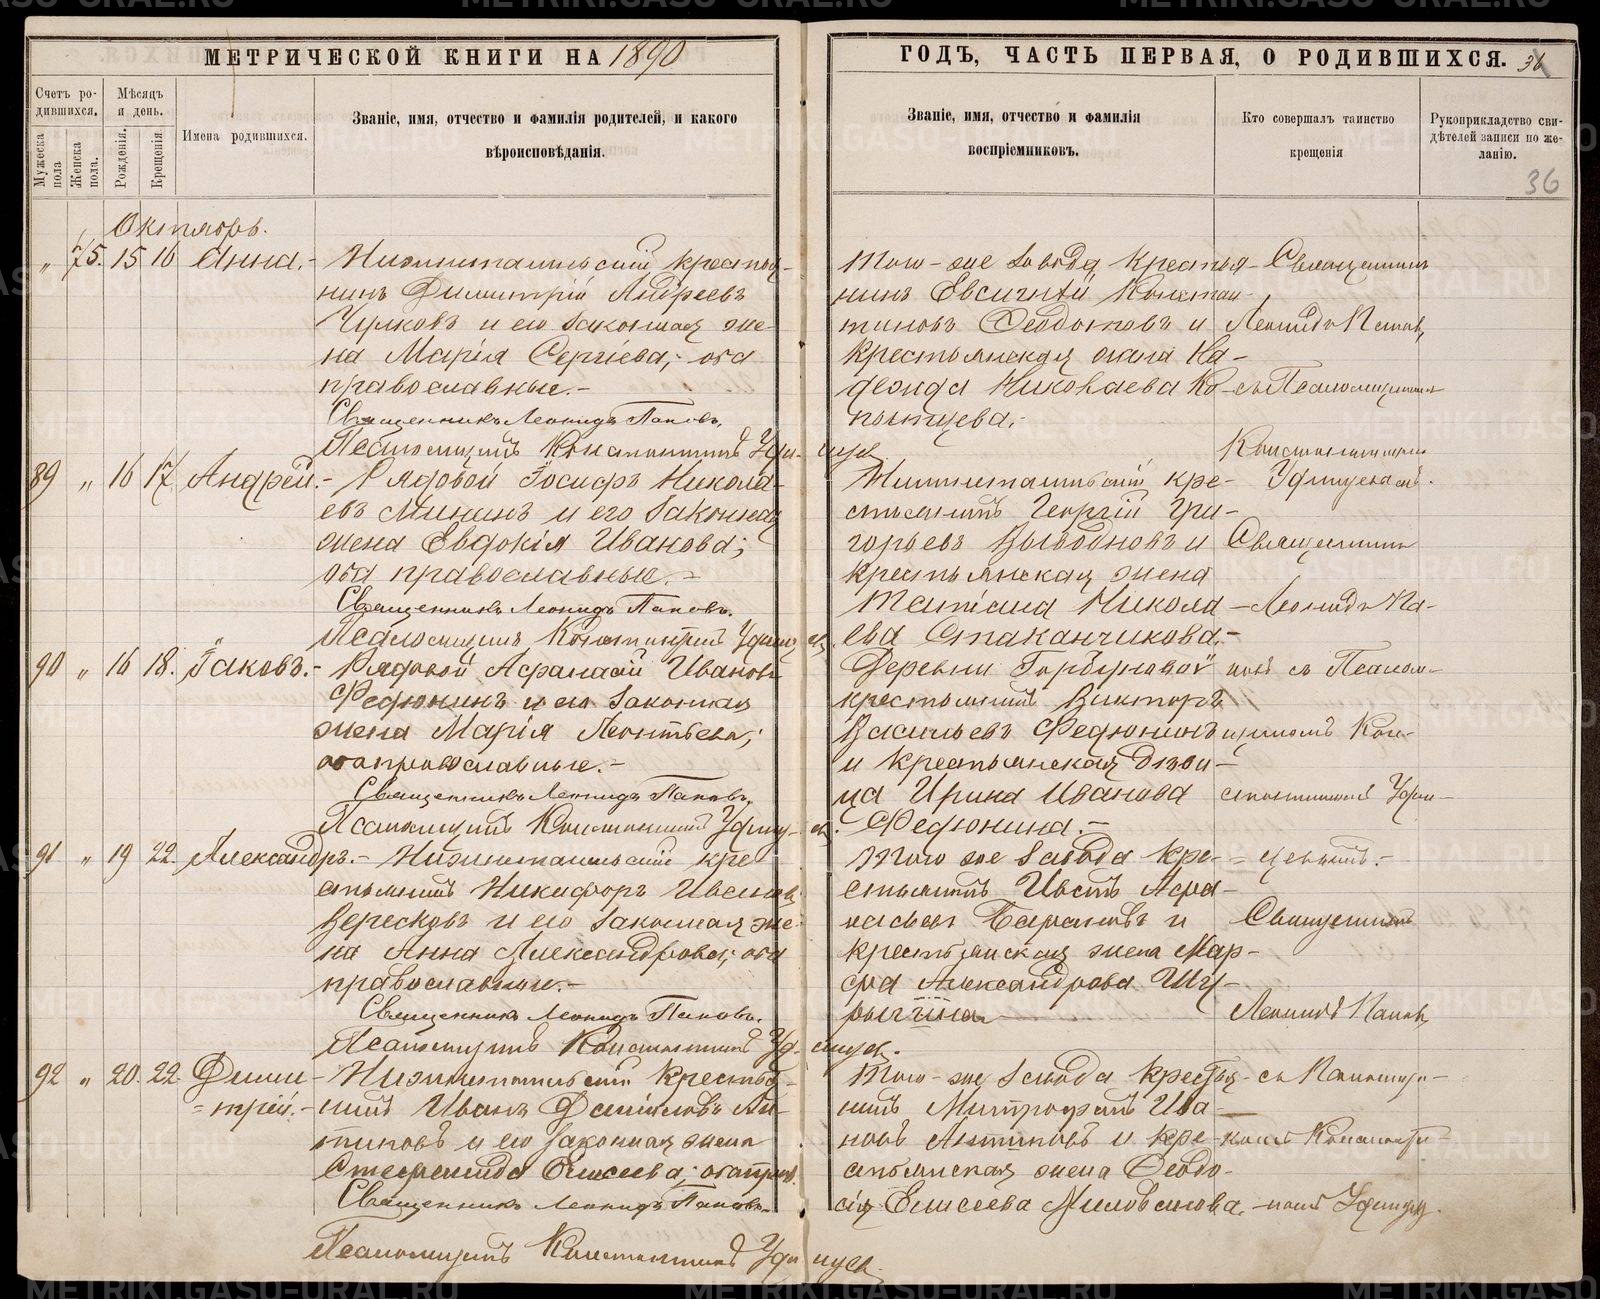 МЕТРИЧЕСКОЙ КНИГИ НА 1890
ГОДЪ, ЧАСТЬ ПЕРВАЯ, О РОДИВШИХСЯ. 36
Счетъ родившихся.
Мужеска пола
Женска пола.
Мѣсяцъ и день.
Рожденія.
Крещенія
Имена родившихся.
Званіе, имя, отчество и фамилія родителей, и какого
вѣроисповѣданія.
Званіе, имя, отчество и фамилія
воспріемниковъ.
Кто совершалъ таинство
крещенія
Рукоприкладство сви-
дѣтелей записи по же-
ланію.
36
Октябрь.
„ 75. 15 16 Анна.-
Нижнетагильскій крестья-
нинъ Димитрій Андреевъ
и его законная же-
на Марія Сергіева; оба
православные.-
Священникъ Леонидъ Поповъ.
Псаломщикъ Константинъ
Того-же завода крестья-
нинъ Евсигній Констан-
тиновъ Ѳеодотовъ и
крестьянская жена На-
дежда Николаева Ко-
пытцева.-
Священникъ
Леонидъ Поповъ
съ Псаломщикомъ
Константиномъ
89 „ 16 17 Андрей.-
Рядовой Іосифъ Никола-
евъ Мининъ и его законная
жена Евдокія Иванова;
оба православные.-
Священникъ Леонидъ Поповъ.
Псаломщикъ Константинъ
Нижнетагильскій кре-
стьянинъ Георгій Гри-
горьевъ и
крестьянская жена
Татіана Никола-
ева Стаканчикова.-
Священникъ
Леонидъ По-
90 „ 16 18. Іаковъ.-
Рядовой Аѳанасій Ивановъ
Федюнинъ и его законная
жена Марія Леонтьева;
оба православные.-
Священникъ Леонидъ Поповъ.
Псаломщикъ Константинъ
Деревни Горбуновой
крестьянинъ Викторъ
Васильевъ Федюнинъ
и крестьянская дѣви-
ца Ирина Иванова
Федюнина.-
повъ съ Псалом-
щикомъ Кон-
стантиномъ
91 „ 19 22. Александръ.-
Нижнетагильскій кре-
стьянинъ Никифоръ
Вересковъ и его законная же-
на Анна Александрова; оба
православные.-
Священникъ Леонидъ Поповъ.
Псаломщикъ Константинъ
Того же завода кре-
стьянинъ Аѳа-
насьевъ Барановъ и
крестьянская жена Мар-
ѳа Александрова
Священникъ
Леонидъ Поповъ
92 „ 20. 22. Дими-
=трій.-
Нижнетагильскій крестья-
нинъ Иванъ Даниловъ Ан-
типовъ и его законная жена
Стефанида Елисеева; оба прав.
Священникъ Леонидъ Поповъ.
Псаломщикъ Константинъ
Того-же завода крестья-
нинъ Митрофанъ Ива-
новъ Антиповъ и кре-
стьянская жена Ѳеодо-
сія Елисеева Миловзинова.